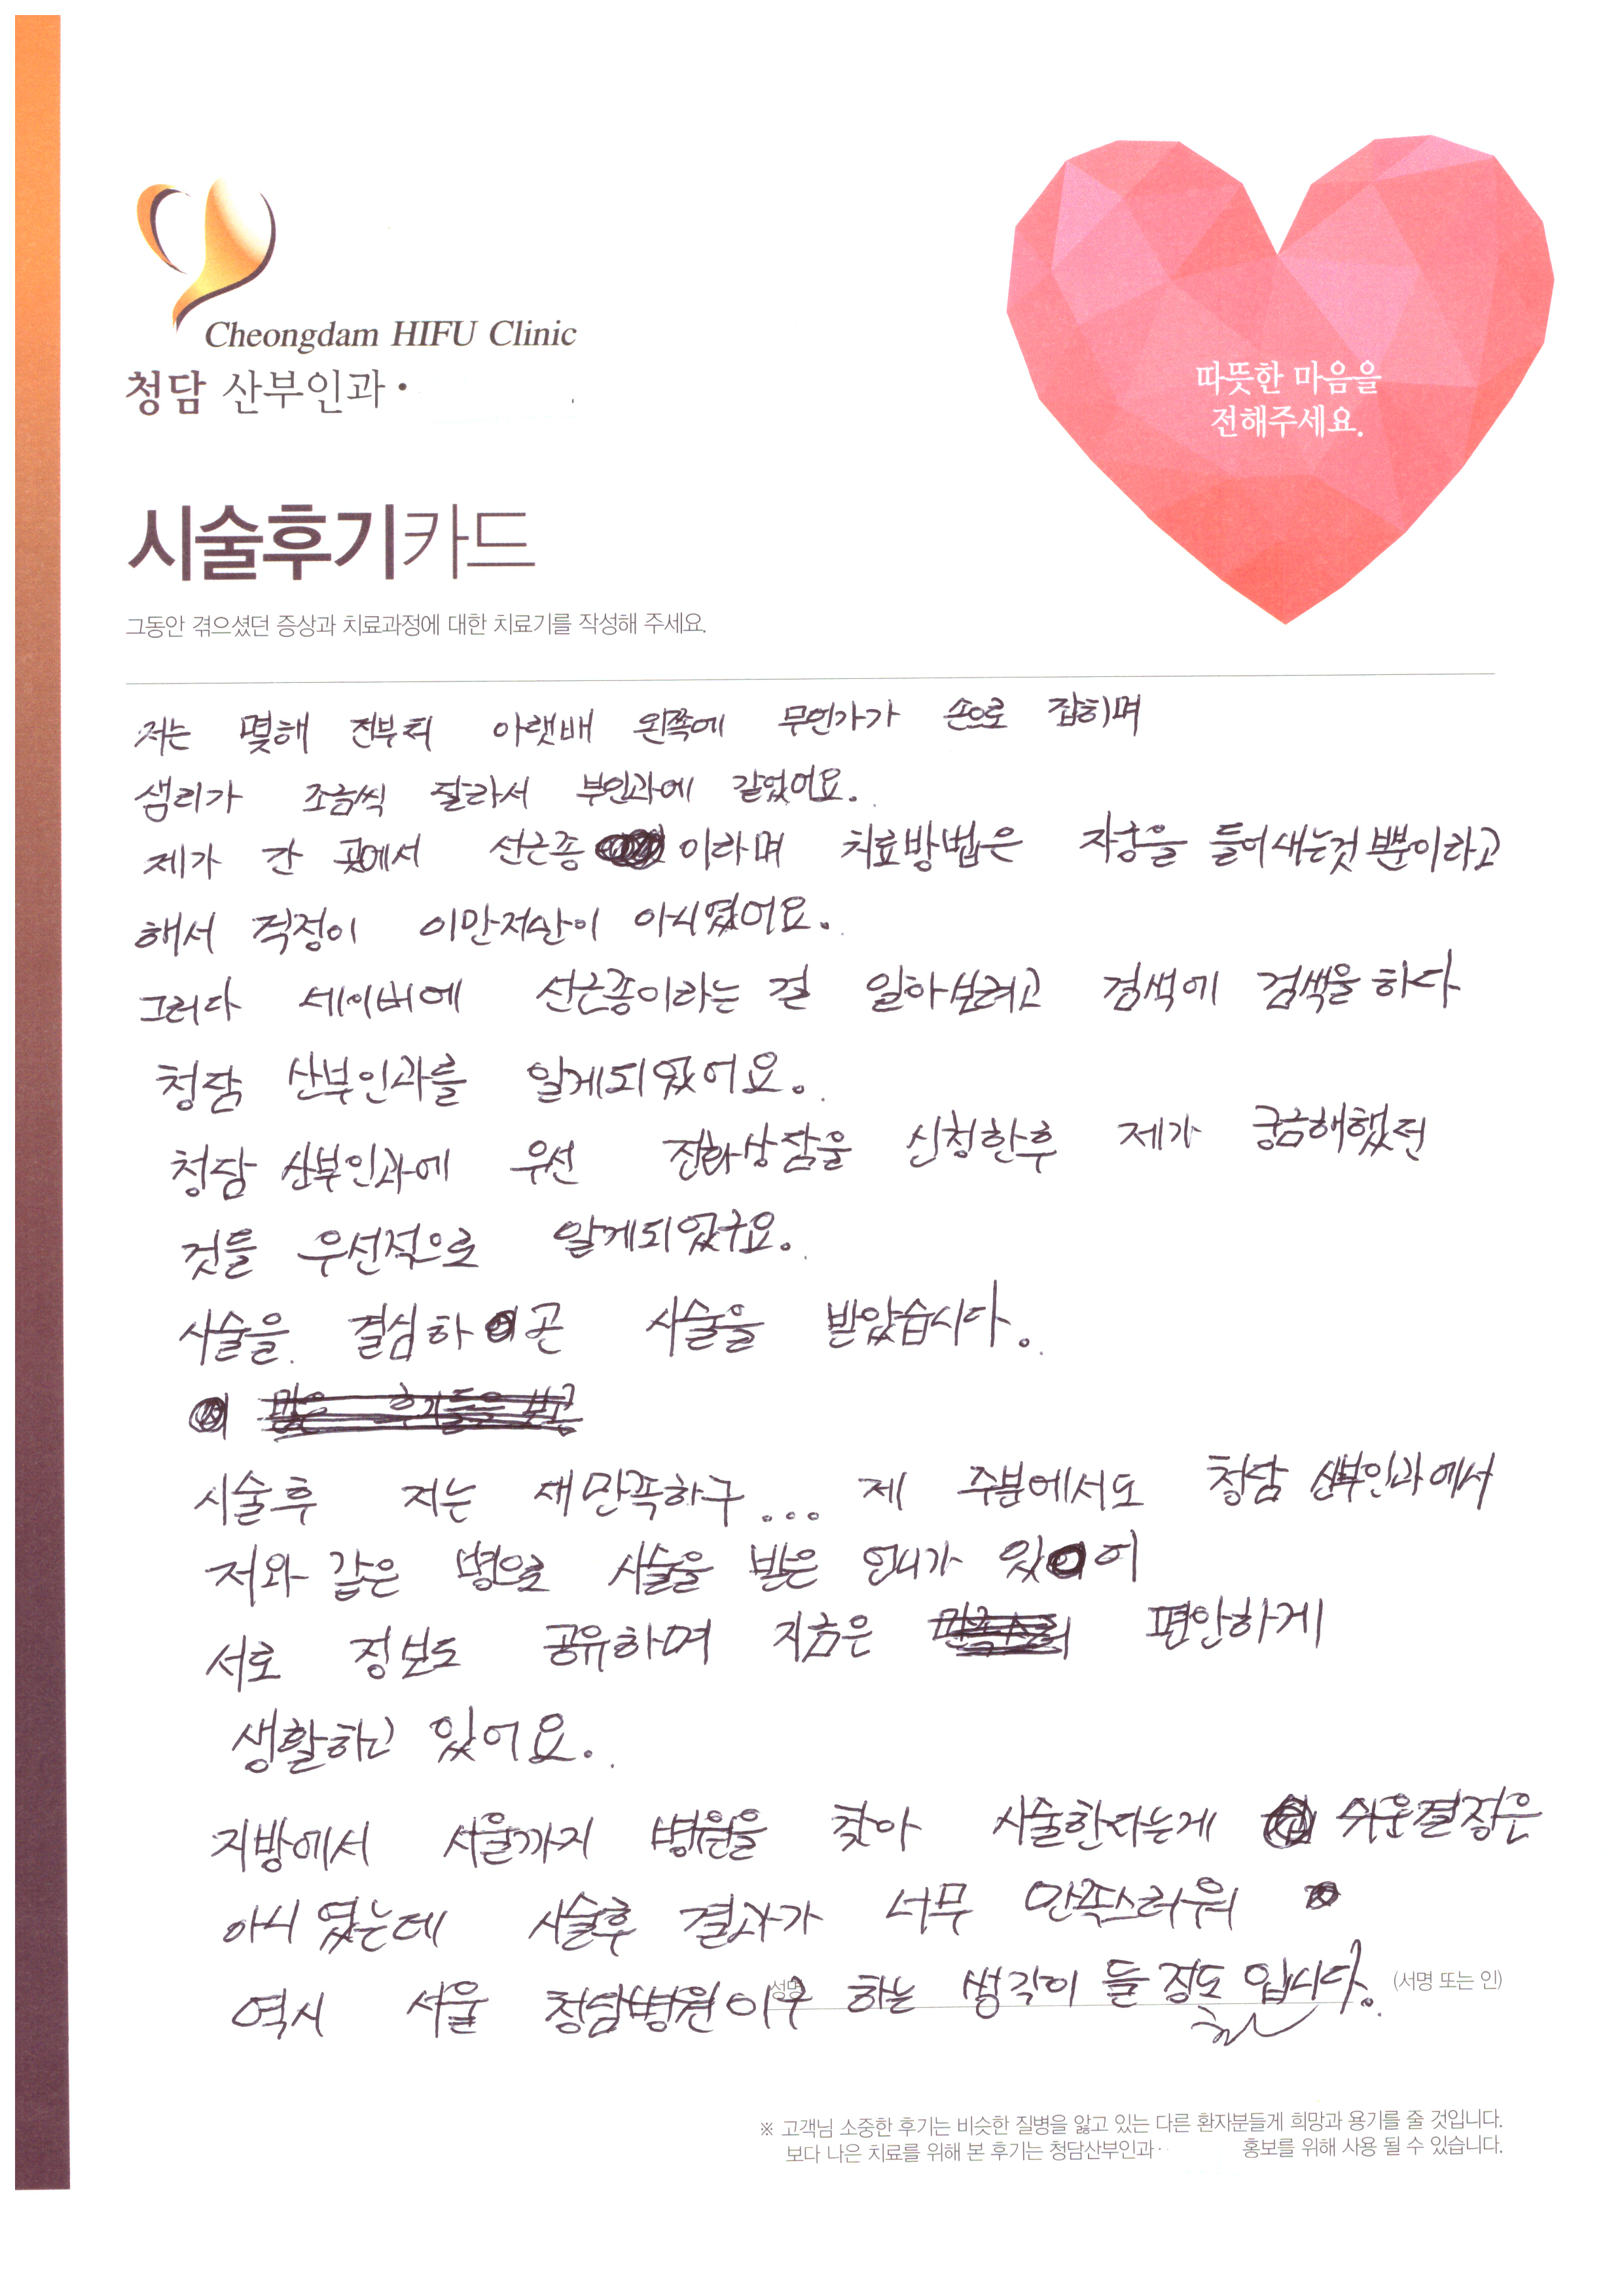 Cheongdam HIFU Clinic
청담 산부인과·
따뜻한 마음을
전해주세요.
시술후기카드
그동안 겪으셨던 증상과 치료과정에 대한 치료기를 작성해 주세요.
저는 몇해 전부터 아랫배 왼쪽에 무언가가 손으로 잡히며
생리가 조금씩 잘라서 부인과에 갔었어요.
제가 간 곳에서 선근종 이라며 치료방법은 자궁을 들어내는것 뿐이라고
해서 걱정이 이만저만이 아니였어요.
그러다 네이버에 선근종이라는 걸 알아보려고 검색에 검색을 하다
청담 산부인과를 알게되었어요.
청담 산부인과에 우선 전화상담을 신청한후 제가 궁금해했던
것들 우선적으로 알게되었구요.
시술을 결심하곤 시술을 받았습니다.
시술후 저는 대만족하구... 제 주분에서도 청담 산부인과에서
저와 같은 병으로 시술을 받은 언니가 있어
서로 정보도 공유하며 지금은 편안하게
생활하고 있어요.
지방에서 서울까지 병원을 찾아 시술한다는게 쉬운결정은
아니였는데 시술후 결과가 너무 만족스러워
역시 서울 청담병원이구 하는 생각이 들 정도 입니다.
성명 (서명 또는 인)
※ 고객님 소중한 후기는 비슷한 질병을 앓고 있는 다른 환자분들게 희망과 용기를 줄 것입니다.
보다 나은 치료를 위해 본 후기는 청담산부인과· 홍보를 위해 사용 될 수 있습니다.